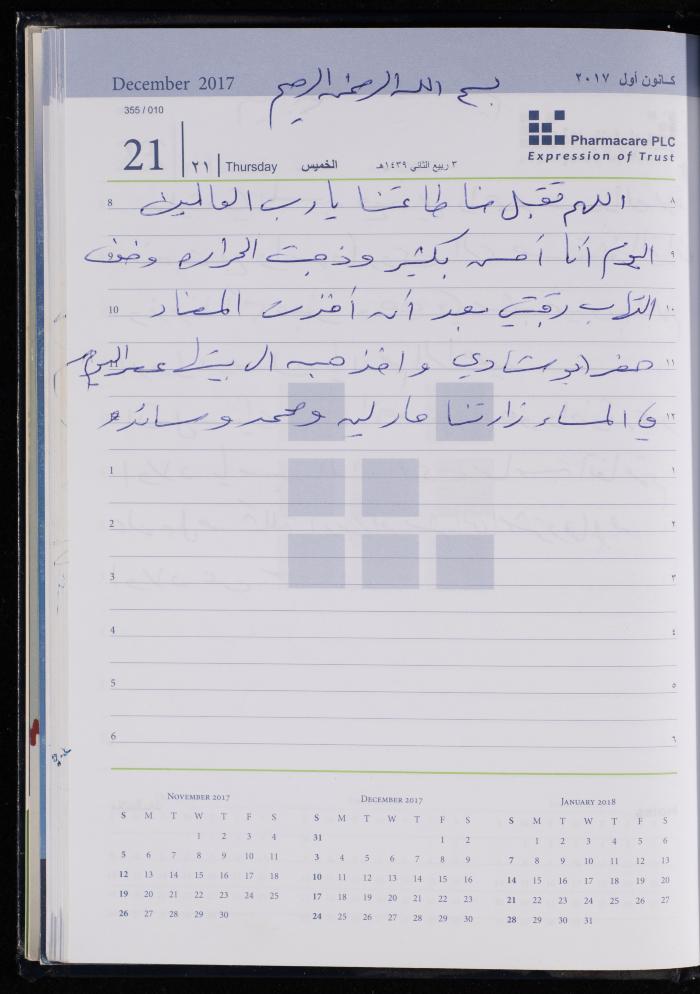 December 2017
بسم الله الرحمن الرحيم
كانون أول ٢٠١٧
355 / 010
21 | ٢١ | Thursday الخميس ٣ ربيع الثاني ١٤٣٩هـ
Pharmacare PLC
Expression of Trust
8 اللهم تقبل منا طاعتنا يا رب العالمين ٨
اليوم أنا أحسن بكثير وذهبت الحراره وخف ٩
10 التهاب رقبتي بعد أن أخذت المضاد ١٠
11 حضر ابو شادي واخذ حبه ال بيتا عصر اليوم ١١
12 في المساء زارتنا مارليه ومحمد وسائده ١٢
1 ١
2 ٢
3 ٣
4 ٤
5 ٥
6 ٦
NOVEMBER 2017
S M T W T F S
1 2 3 4
5 6 7 8 9 10 11
12 13 14 15 16 17 18
19 20 21 22 23 24 25
26 27 28 29 30
DECEMBER 2017
S M T W T F S
31 1 2
3 4 5 6 7 8 9
10 11 12 13 14 15 16
17 18 19 20 21 22 23
24 25 26 27 28 29 30
JANUARY 2018
S M T W T F S
1 2 3 4 5 6
7 8 9 10 11 12 13
14 15 16 17 18 19 20
21 22 23 24 25 26 27
28 29 30 31